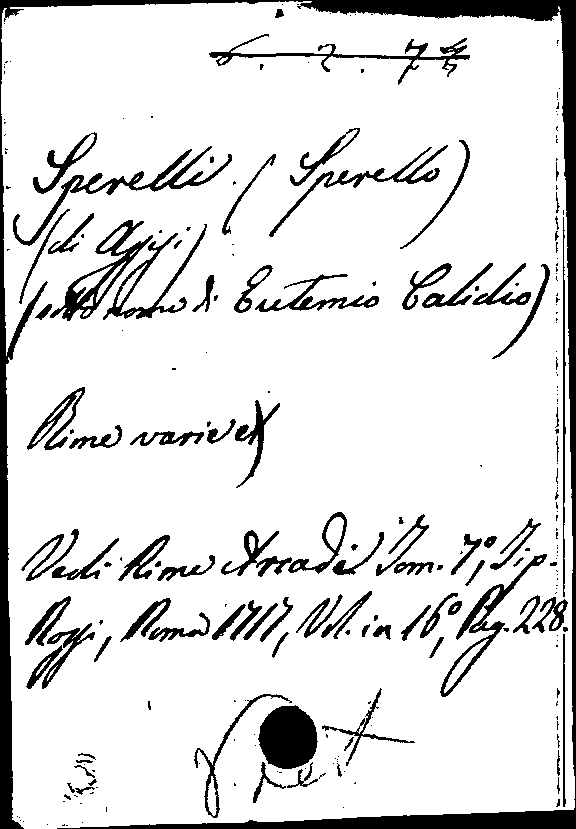 6. 2. 7
Sperelli. (Sperello)
(di Assisi)
(sotto nome di Eutemio Calidio)
Rime varie
Vedi Rime Arcadi Tom. 7º, Tip.
Rossi, Roma 1717, Vol. in 16º, Pag. 228.